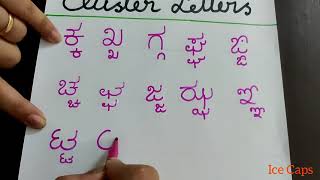 Cluster Letters
ಕ್ಕ ಖ್ಖ ಗ್ಗ ಘ್ಘ ಙ್ಙ
ಚ್ಚ ಛ್ಛ ಜ್ಜ ಝ್ಝ ಞ್ಞ
ಟ್ಟ
Ice Caps